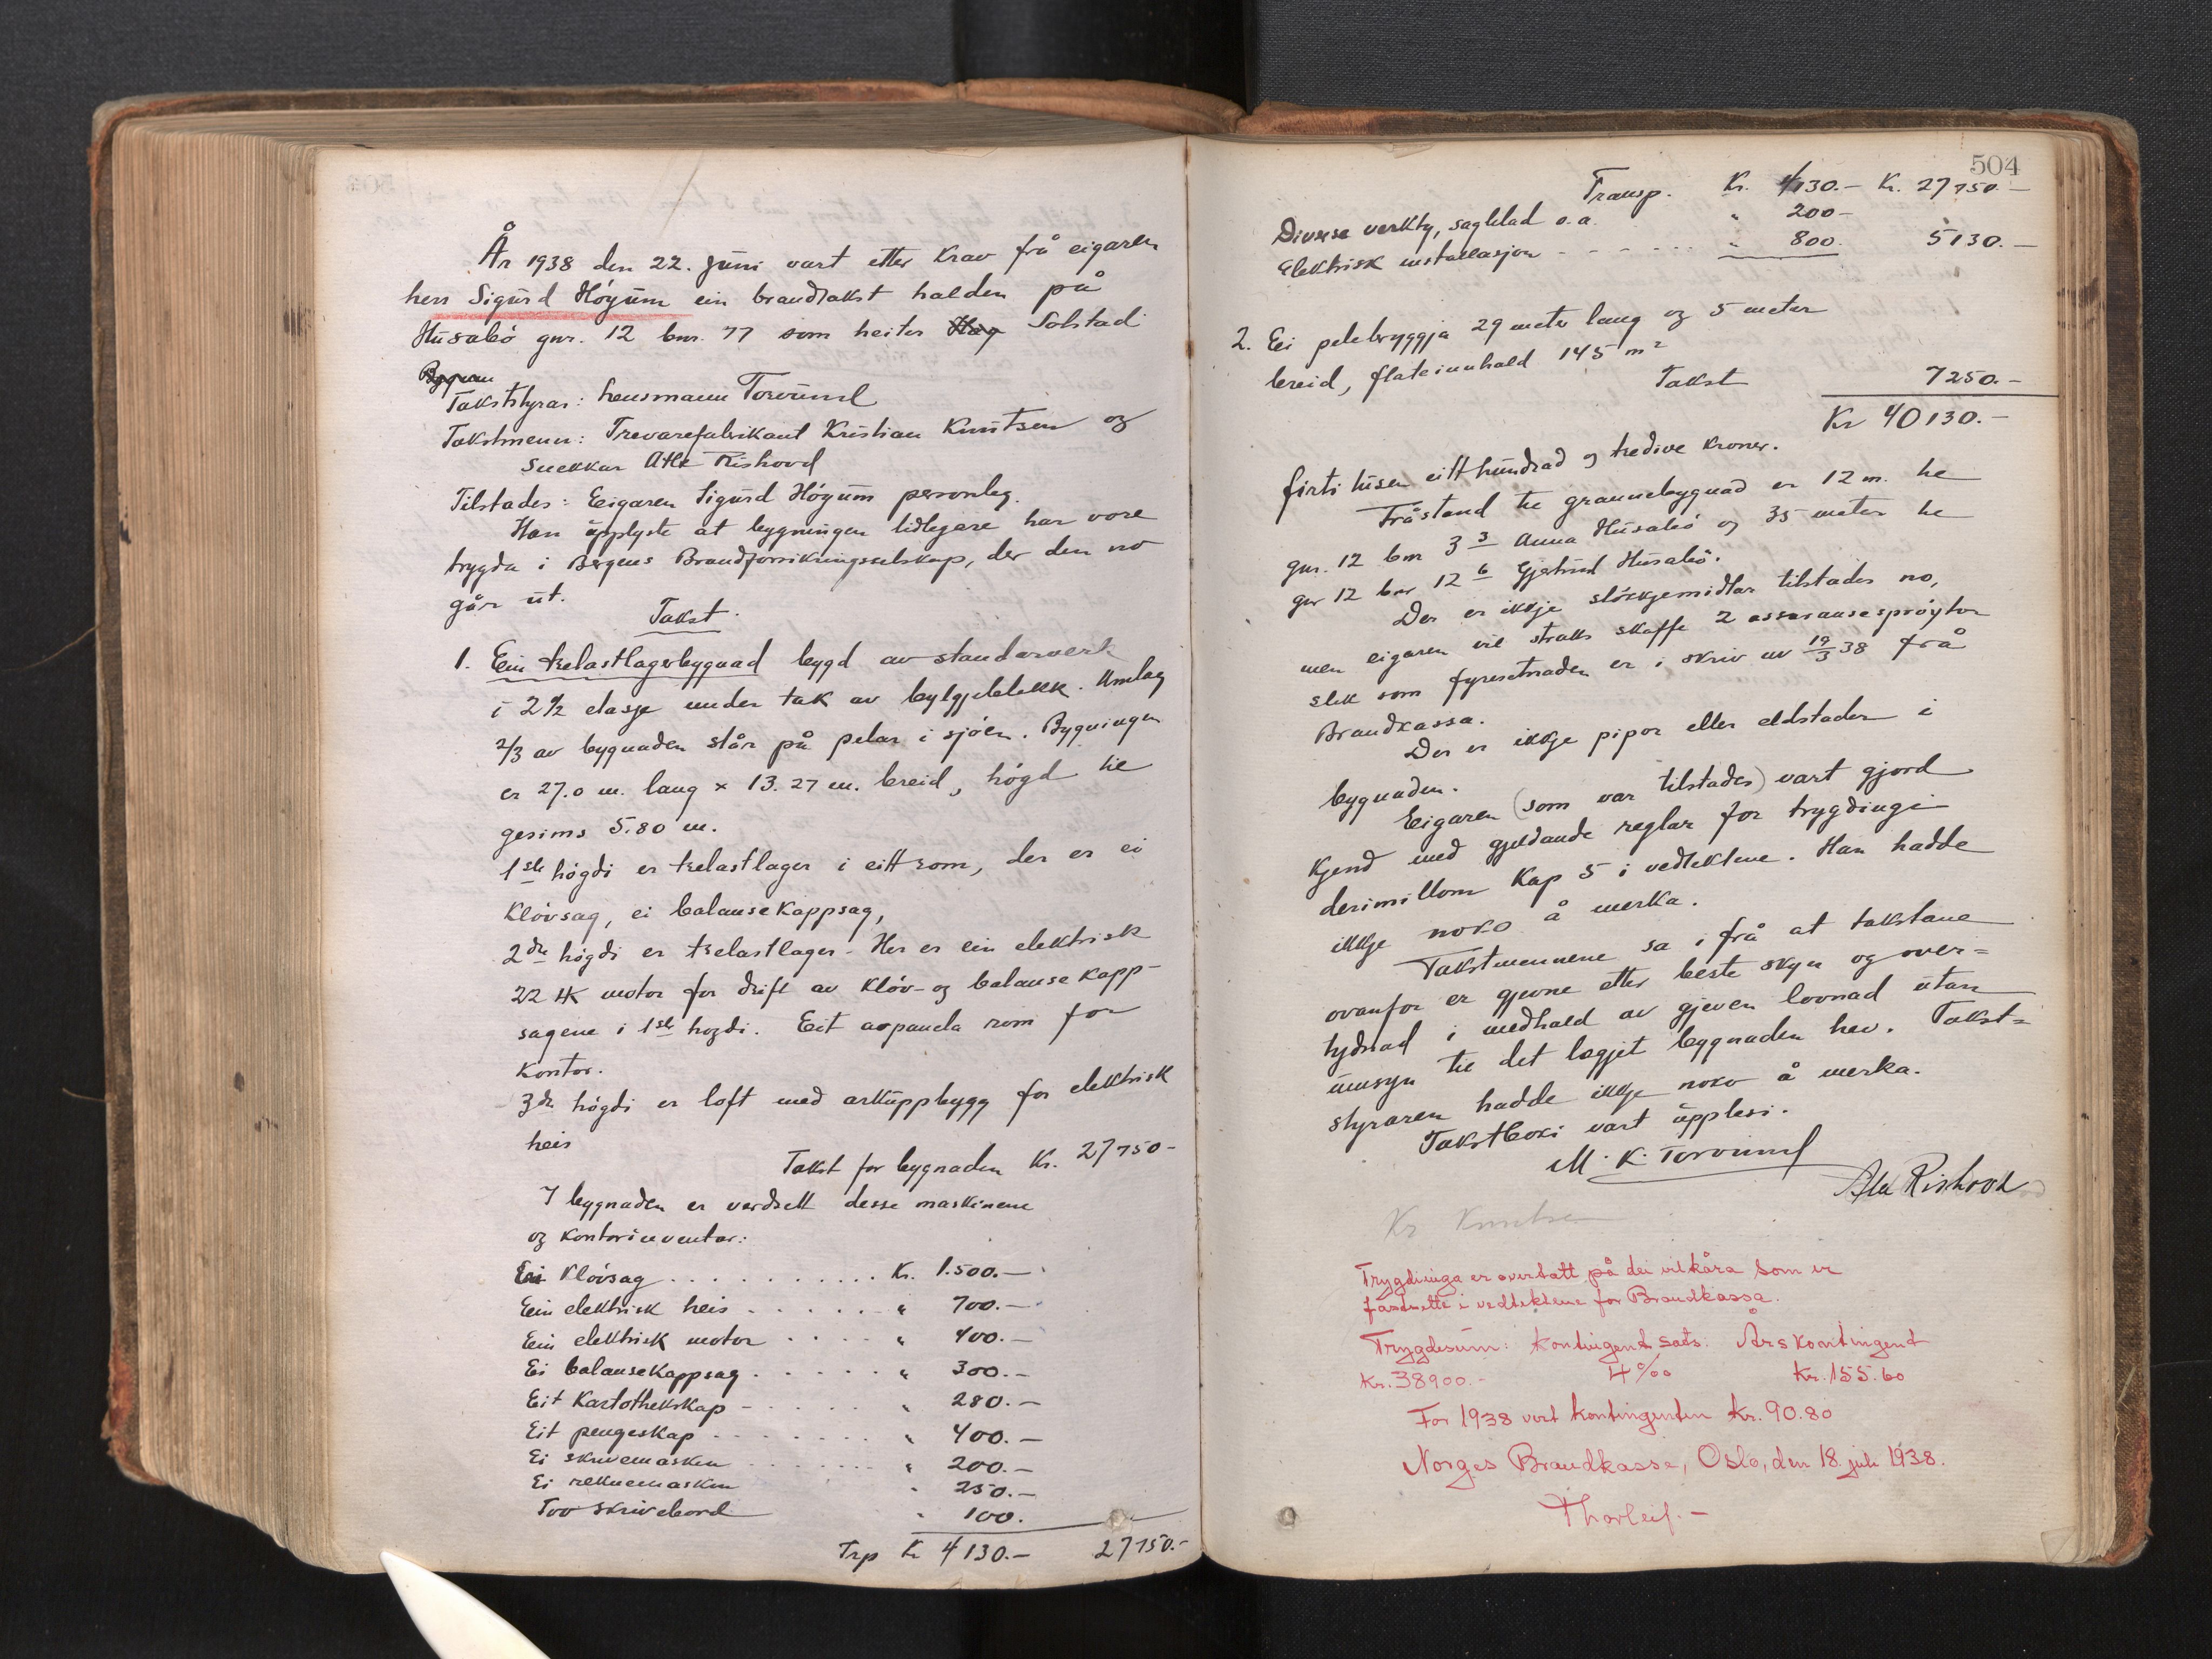 År 1938 den 22. juni vart etter krav frå eigaren
herr Sigurd Höyum ein brandtakst halden på
Husabö gnr. 12 bnr. 77 som heiter Solstad
Takststyrar: lensmann Torvund
Takstmenn: Trevarefabrikant Kristian Knutsen og
snekkar Atle Rishovd
Tilstades: Eigaren Sigurd Höyum personleg.
Han upplyste at bygningen tidlegare har vore
trygda i Bergens Brandforsikringsselskap, der den no
går ut.
Takst.
1. Ein trelastlagerbygnad bygd av standerverk
i 2½ etasje under tak av bylgjeblekk. Umlag
2/3 av bygnaden står på pelar i sjöen. Bygningen
er 27.0 m. lang x 13.27 m. breid, högd til
gesims 5.80 m.
1ste högdi er trelastlager i eitt rom, der er ei
klövsag, ei balansekappsag,
2dre högdi er trelastlager - Her er ein elektrisk
22 HK motor for drift av klöv- og balansekapp-
sagene i 1ste hogdi. Eit avpanela rom for
kontor.
3dje högdi er loft med arkuppbygg for elektrisk
heis
Takst for bygnaden Kr. 27750-
I bygnaden er verdsett desse maskinene
og kontorinventar:
Ei klövsag . . . . . . . . . . Kr. 1.500.—
Ein elektrisk heis . . . . . . " 700.—
Ein elektrisk motor . . . . " 400.—
Ei balansekappsag . . . . . " 300.—
Eit kartothekskap - . . . . " 280.—
Eit pengeskap . . . . . . . " 400.—
Ei skrivemaskin . . . . . . " 200.—
Ei reknemaskin " 250.—
Tvo skrivebord " 100.
Trp Kr 4130.— 27750.-
504
Transp. Kr. 4130.— Kr. 27750.—
Diverse verkty, sagblad o.a. " 200-
Elektrisk installasjon - - - . . . " 800. 5130.—
2. Ei pelebryggja 29 meter lang og 5 meter
breid, flateinnhald 145 m²
Takst 7250.-
Kr 40130.-
firti tusen eitt hundrad og tredive kroner.
Fråstand til grannebygnad er 12 m. til
gnr. 12 bnr 3 3 Anna Husabö og 35 meter til
gnr 12 bnr 12 6 Gjertrud Husabö.
Der er ikkje slökkjemidlar tilstades no,
men eigaren vil straks skaffe 2 assuransespröytor
slik som fyresetnaden er i skriv av 19/3 38 frå
Brandkassa.
Der er ikkje pipor eller eldstader i
bygnaden.
Eigaren (som var tilstades) vart gjord
kjend med gjeldande reglar for trygdingi
derimillom Kap 5 i vedtektene. Han hadde
ikkje noko å merka.
Takstmennene sa i frå at takstane
ovanfor er gjevne etter beste skyn og over=
tydnad i medhald av gjeven lovnad utan
umsyn til det lægjet bygnaden hev. Takst=
styraren hadde ikkje noko å merka.
Takstboki vart upplesi.
M. K. Torvund
Atle Rishovd
Kr Knutsen
Trygdinga er overtatt på dei vilkåra som er
fastsette i vedtektene for Brandkassa.
Trygdesum: kontingentsats. Årskontingent
Kr. 38900.- 4‰ Kr. 155.60
For 1938 vert kontingenten Kr. 90.80
Norges Brandkasse, Oslo, den 18. juli 1938.
Thorleif. -